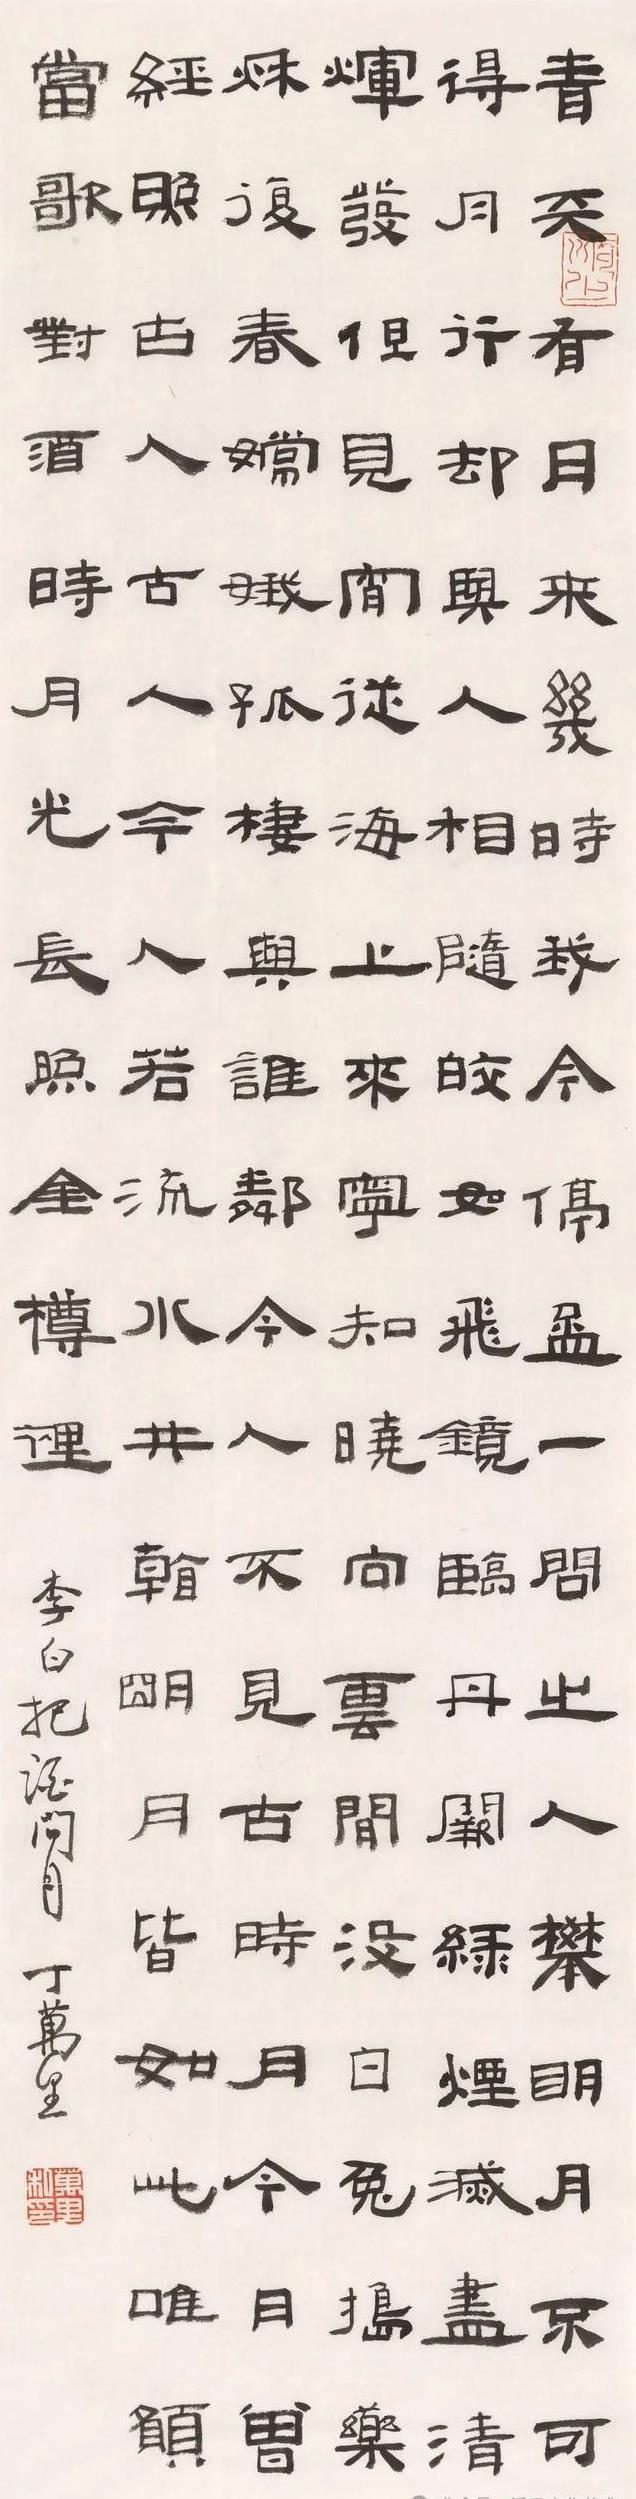 青天有月来幾時我今停盃一問之人攀明月不可
得月行却與人相隨皎如飛鏡臨丹闕緑煙滅盡清
輝發但見宵從海上來寧知曉向雲閒没白兔搗藥
秌復春嫦娥孤棲與誰鄰今人不見古時月今月曾
經照古人古人今人若流水共看明月皆如此唯願
當歌對酒時月光長照金樽裡 李白把酒問月 丁萬里
萬里私印